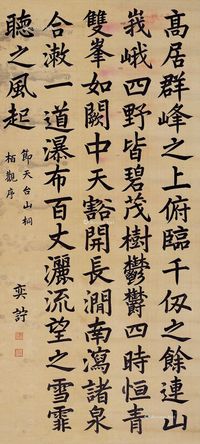 髙居群峰之上俯臨千仞之餘連山
峩峨四野皆碧茂樹鬱鬱四時恒青
雙峯如闕中天豁開長澗南瀉諸泉
合漱一道瀑布百丈灑流望之雪霏
聽之風起
節天台山桐
栢觀序
奕